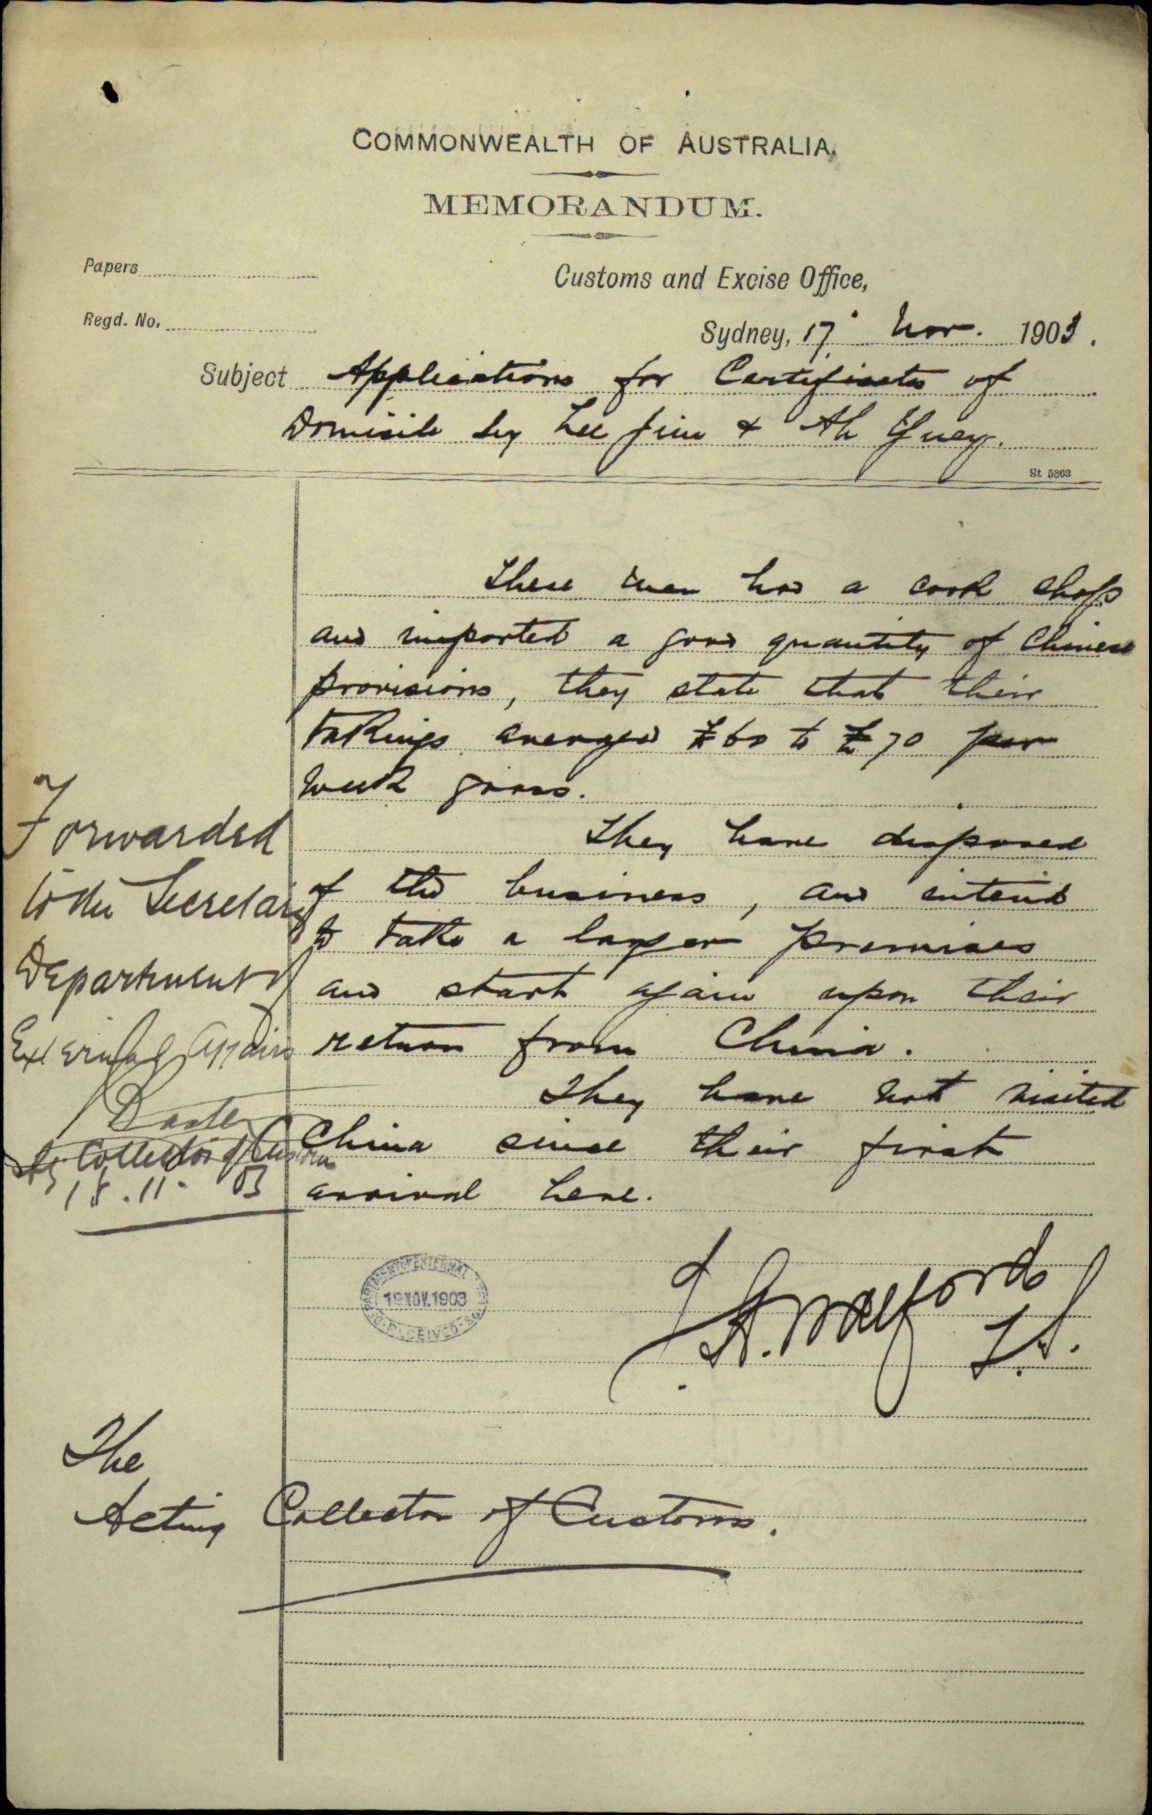 COMMONWEALTH OF AUSTRALIA.
MEMORANDUM.
Papers
Customs and Excise Office,
Regd. No.
Sydney, 17 Nov. 1903.
Subject Applications for Certificates of
Domicile by Lee Jim & Ah Yuey.
St 5863
These men had a cook shop
and imported a good quantity of Chinese
provisions, they state that their
takings averaged £60 to £70 per
week gross.
They have disposed
of the business, and intend
to take a larger premises
and start again upon their
return from China.
They have not visited
China since their first
arrival here.
Forwarded
to the Secretary
Department of
External Affairs
Baxter
Ag Collector of Customs
18.11.03
19 NOV. 1903
RECEIVED
J. H. Walford
I.S.
The
Acting Collector of Customs.